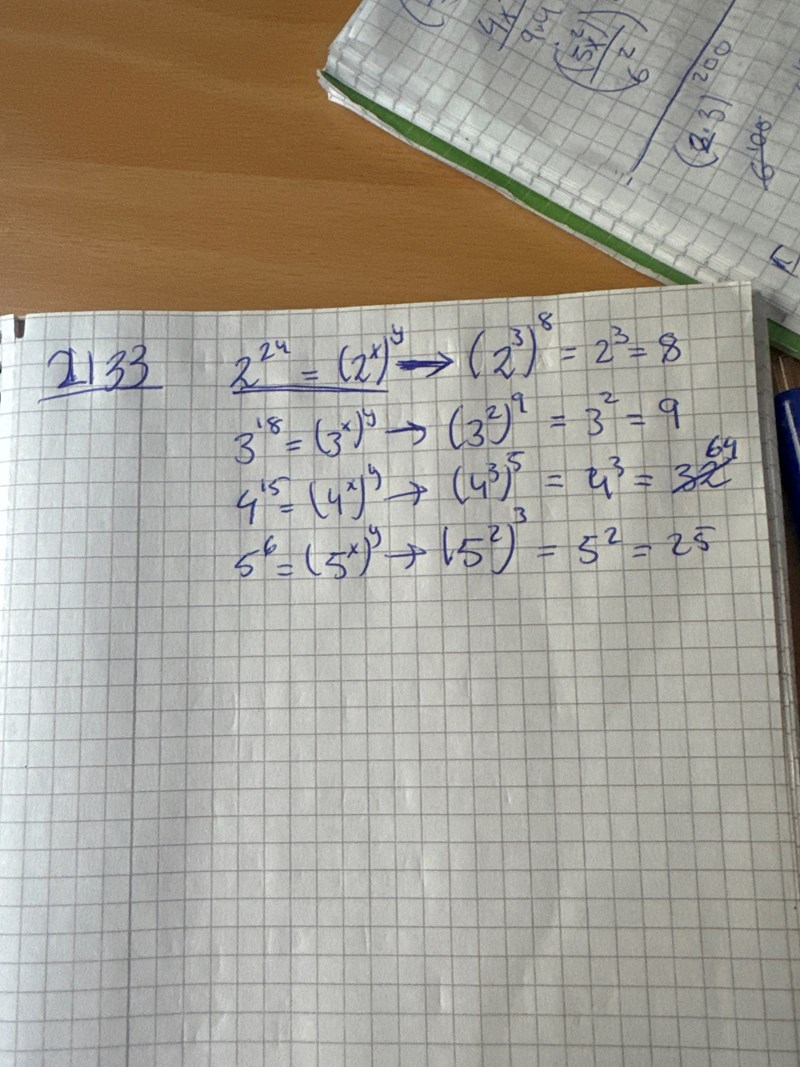 2133 2²⁴ = (2ˣ)ʸ → (2³)⁸ = 2³ = 8
3¹⁸ = (3ˣ)ʸ → (3²)⁹ = 3² = 9
4¹⁵ = (4ˣ)ʸ → (4³)⁵ = 4³ = ~~32~~ 64
5⁶ = (5ˣ)ʸ → (5²)³ = 5² = 25
4x
9·4
(5x²)
6²
(2·3)²⁰⁰
6¹⁰⁰